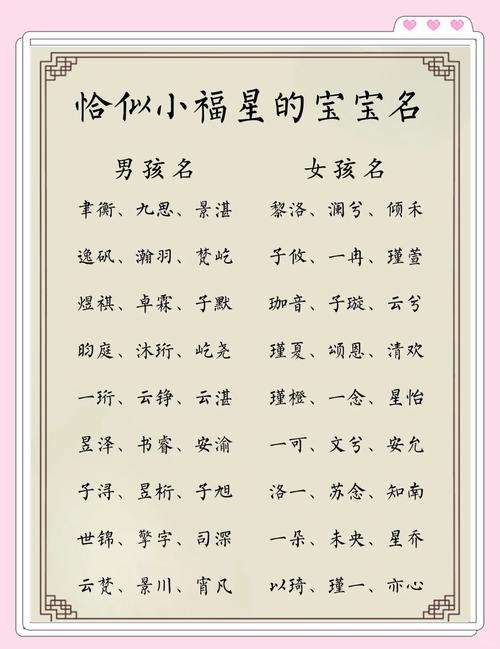 恰似小福星的宝宝名
男孩名 女孩名
聿衡、九思、景湛 黎洛、澜兮、倾禾
逸矾、瀚羽、梵屹 子攸、一冉、瑾萱
煜祺、卓霖、子默 珈音、子璇、云兮
昀庭、沐珩、屹尧 瑾夏、颂恩、清欢
一珩、云铮、云湛 瑾橙、一念、星怡
昱泽、书睿、安渝 一可、文兮、安允
子浔、昱桁、子旭 洛一、苏念、知南
世锦、擎宇、司深 一朵、未央、星乔
云梵、景川、宵凡 以琦、瑾一、亦心